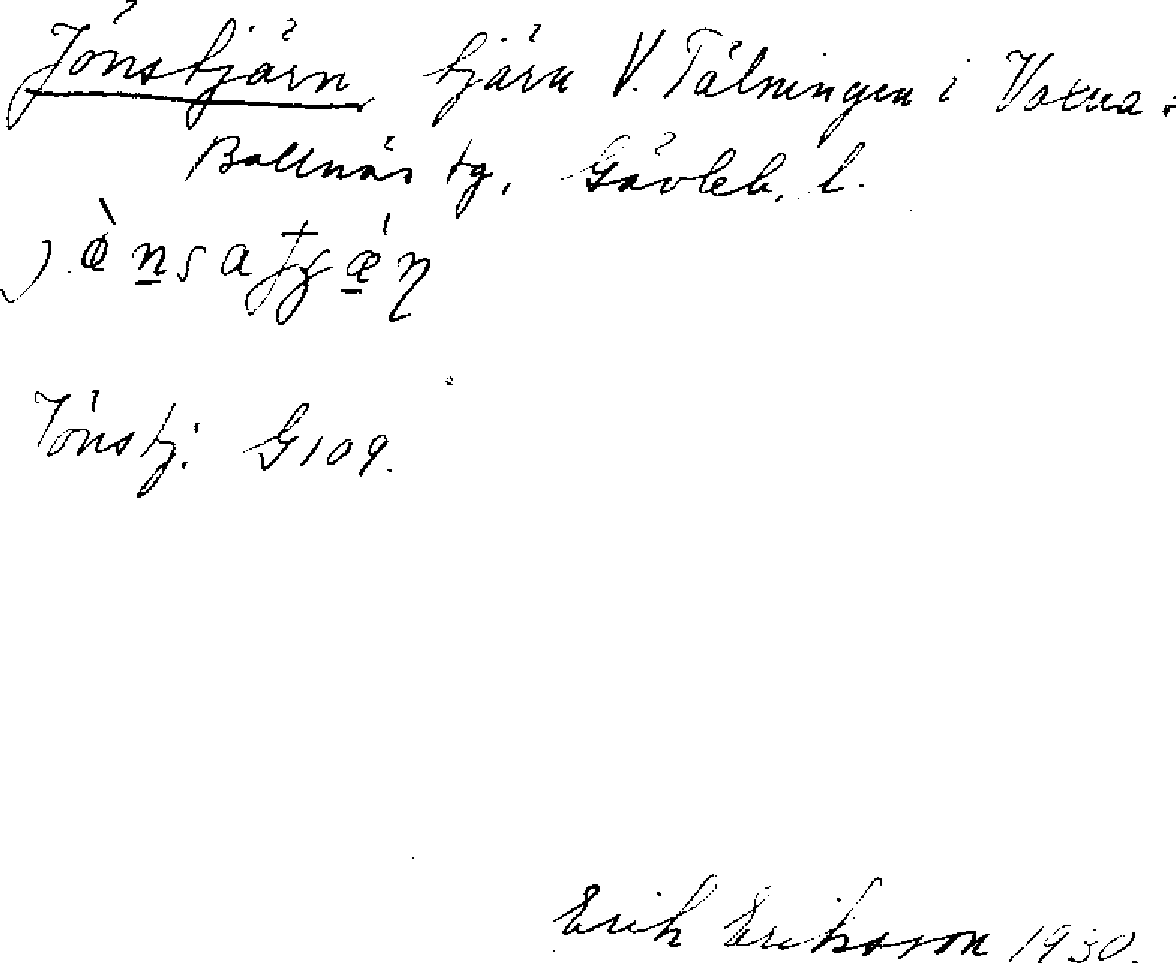 Jönstjärn tjärn V. Tälningen i Voxna :
Bollnäs tg, Gävleb. l.
Jönstj. G109.
Erik Eriksson 1930.